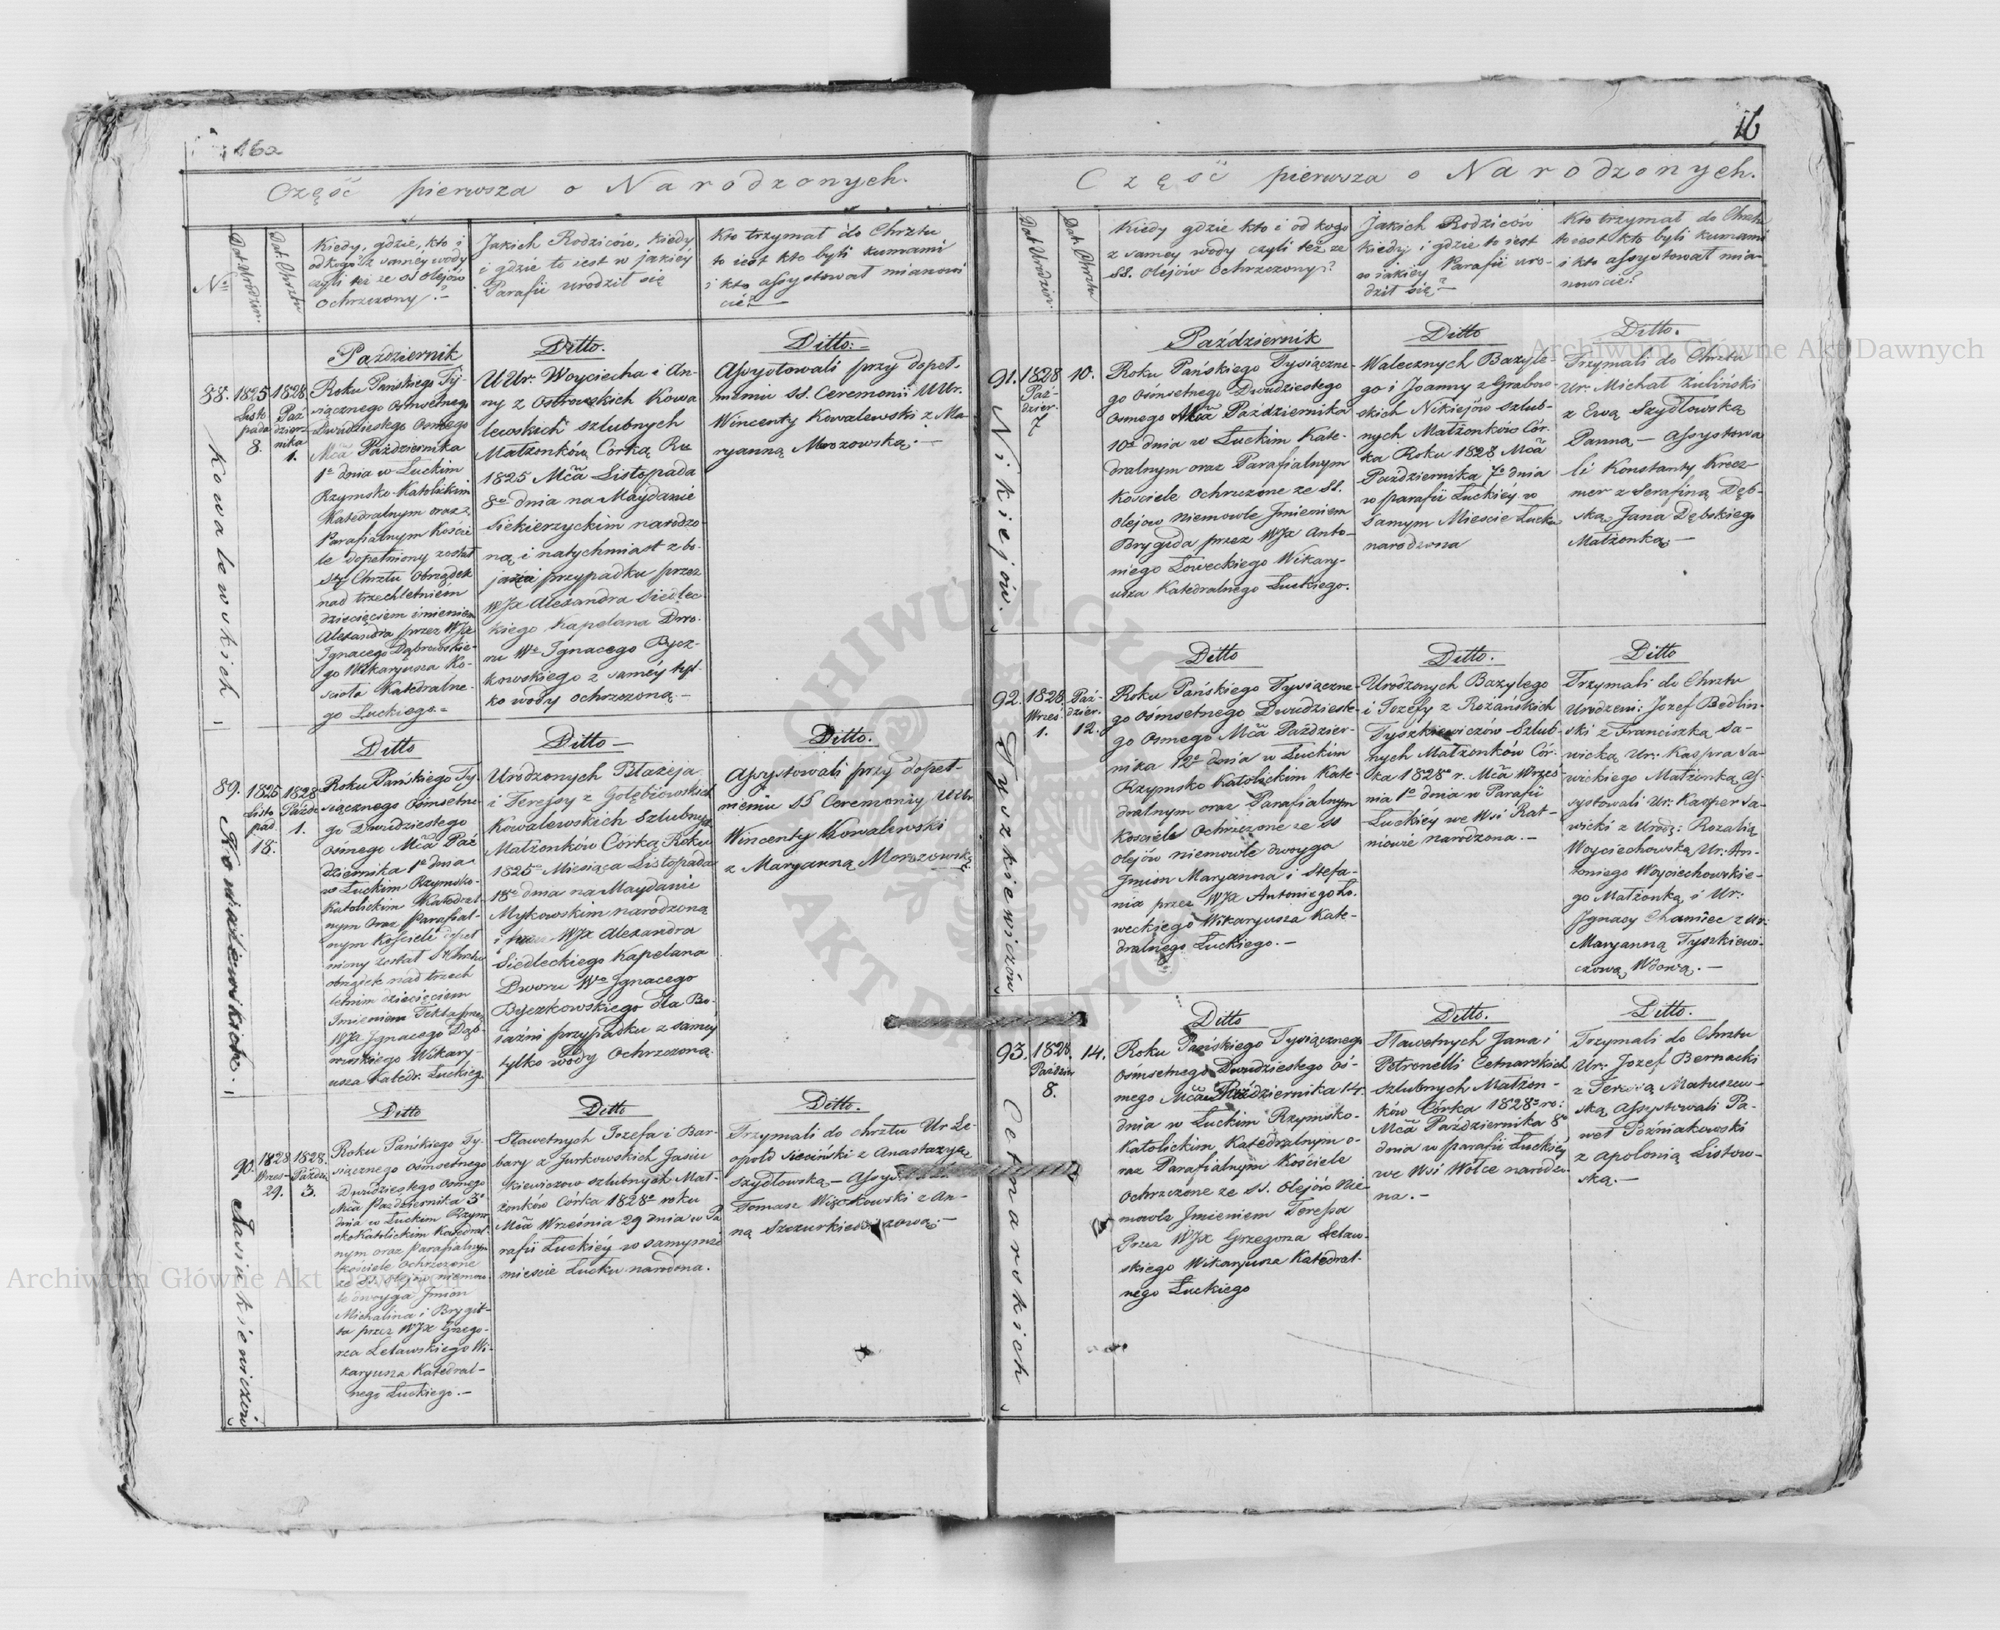 16a
Część pierwsza o Narodzonych.
Nr
Dat: Urodzin:
Dat: Chrztu
Kiedy, gdzie, kto i
od kogo z samey wody
czyli też ze SS olejów
Ochrzczony.—
Jakich Rodziców, kiedy
i gdzie to iest w jakiéy
Parafii urodził się
Kto trzymał do Chrztu
to iest kto byli kumami
i kto assystował mianowi
cie?—
88.
1825
Listo
pada
8.
1828
Paź
dzier-
nika
1.
Kowalewskich
Październik
Roku Pańskiego Ty-
siącznego Ośmsetnego
Dwudziestego Osmego
Mča Października
1o dnia w Łuckim
Rzymsko-Katolickim
Katedralnym oraz
Parafialnym Koście
le dopełniony został
Sty Chrztu Obrządek
nad trzechletniém
dziecięciem imieniem
Alexandra przez WJX
Ignacego Dąbrowskie-
go Wikaryusza Ko-
scioła Katedralne-
go Łuckiego.—
Ditto.
UUr: Woyciecha i An-
ny z Ostrowskich Kowa
lewskich szlubnych
Małżonków, Córką Ru
1825 Mča Listopada
8o dnia na Maydanie
Siekierzyckim narodzo-
ną i natychmiast z bo-
jaźni przypadku przez
WJX Alexandra Siedlec
kiego Kapelana Dwo-
ru Wo Ignacego Bycz-
kowskiego z saméy tyl-
ko wody ochrzczoną.—
Ditto:—
Assystowali przy dopeł-
nieniu SS. Ceremonii UUr.
Wincenty Kowalewski z Ma-
ryanną Morozowską.—
89.
1825
Listo
pad.
18.
1828
Paźdz
1.
Kowalewskich.
Ditto
Roku Pańskiego Ty-
siącznego Ośmsetne-
go Dwudziestego
Ośmego Mča Paź
dziernika 1o dnia
w Łuckim Rzymsko-
Katolickim Katedral
nym Oraz Parafial-
nym Kościele dopeł
niony został St Chrztu
obrządek nad trzech
letnim dziecięciem
Imieniem Tekla przez
WJX Ignacego Dąb-
rowskiego Wikary-
usza Katedr. Łuckieg
Ditto—
Urodzonych Błażeja
i Teressy z Gołębiowskich
Kowalewskich szlubnych
Małżonków Córką Roku
1825o Miesiąca Listopada
18o dnia na Maydanie
Mykowskim narodzoną
i przez WJX Alexandra
Siedleckiego Kapelana
Dworu Wo Ignacego
Byczkowskiego dla Bo-
jaźni przypadku z saméy
tylko wody Ochrzczoną.
Ditto.
Assystowali przy dopeł-
nieniu SS Ceremoniy UUr
Wincenty Kowalewski
z Maryanną Morozowską
90.
1828
Wrześ-
29.
1828.
Paździ
3.
Jasiukiewiczów
Ditto
Roku Pańskiego Ty-
siącznego Ośmsetnego
Dwudziestego Osmego
Mča Października 3o
dnia w Łuckim Rzym-
sko Katolickim Katedral
nym oraz Parafialnym
Kościele Ochrzczone
ze SS olejów niemow-
le dwoyga Jmion
Michalina i Brygit-
ta przez WJX Grzego-
rza Letawskiego Wi-
karyusza Katedral-
nego Łuckiego.—
Ditto
Sławetnych Jozefa i Bar-
bary z Jurkowskich Jasiu
kiewiczow szlubnych Mał-
żonków Córka 1828o roku
Mča Września 29 dnia w Pa
rafii Łuckiéy w samymże
mieście Łucku narodzona.
Ditto.
Trzymali do chrztu Ur Le-
opold Sieciński z Anastazyą
Szydłowską—
Tomasz z An-
ną
16
Część pierwsza o Narodzonych.
Dat: Urodzin:
Dat: Chrztu
Kiedy gdzie kto i od kogo
z samey wody czyli też ze
SS. Olejów Ochrzczony?
Jakich Rodziców
kiedy i gdzie to iest
w jakiéy Parafii uro-
dził się?—
Kto trzymał do Chrztu
to iest kto byli kumami
i kto assystował mia-
nowicie?
91.
1828
Paź-
dzier-
7
10.
Nikiejów.
Październik
Roku Pańskiego Tysiączne-
go Ośmsetnego Dwudziestego
Osmego Mča Października
10o dnia w Łuckim Kate-
dralnym oraz Parafialnym
Kościele Ochrzczone ze SS.
Olejow niemowle Jmieniem
Brygida przez WJX Anto-
niego Łoweckiego Wikary-
usza Katedralnego Łuckiego.
Ditto
Walecznych Bazyle-
go i Joanny z Grabow-
skich Nikiejów szlub-
nych Małżonków Cór-
ka Roku 1828 Mča
Października 7o dnia
w parafii Łuckiey w
Samym Mieście Łucku
narodzona
Ditto.
Trzymali do Chrztu
Ur. Michał Żuliński
z Ewą Szydłowską
Panną— Assystowa
li Konstanty Krecz-
mer z Serafiną Dęb-
ską, Jana Dębskiego
Małżonką.—
92.
1828
Wrześ
1.
Paź-
dzier.
12.
Tyszkiewiczów
Ditto
Roku Pańskiego Tysiączne-
go Ośmsetnego Dwudzieste-
go Osmego Mča Paździer-
nika 12o dnia w Łuckim
Rzymsko Katolickim Kate-
dralnym oraz Parafialnym
Kościele Ochrzczone ze SS
olejów niemowle dwoyga
Jmion Maryanna i Stefa-
nia przez WJX Antoniego Ło-
weckiego Wikaryusza Kate-
dralnego Łuckiego.—
Ditto.
Urodzonych Bazylego
i Jozefy z Rożańskich
Tyszkiewiczów Szlub-
nych Małżonków Cór-
ka 1828o r. Mča Wrześ-
nia 1o dnia w Parafii
Łuckiéy we Wsi Rat-
niowie narodzona.—
Ditto
Trzymali do Chrztu
Urodzeni: Jozef Bedlin-
ski z Franciszką Sa-
wicką, Ur. Kaspra Sa-
wickiego Małżonką As-
systowali Ur: Kasper Sa-
wicki z Urodz: Rozalią
Woyciechowską, Ur. An-
toniego Woyciechowskie-
go Małżonką i Ur:
Jgnacy Chamiec z Ur:
Maryanną Tyszkiewi-
czową Wdową.—
93.
1828.
Paździer
8.
14.
Cetnarskich
Ditto
Roku Pańskiego Tysiącznego
Ośmsetnego Dwudziestego Oś-
mego Mča Października 14.
dnia w Łuckim Rzymsko-
Katolickim Katedralnym o-
raz Parafialnym Kościele
Ochrzczone ze SS. Olejów Nie-
mowle Jmieniem Teressa
Przez WJX Grzegorza Letaw-
skiego Wikaryusza Katedral-
nego Łuckiego
Ditto.
Sławetnych Jana i
Petronelli Cetnarskich
szlubnych Małżon-
ków Córka 1828o ro:
Mča Października 8o
dnia w parafii Łuckiéy
we Wsi Wólce narodzo-
na.—
Ditto.
Trzymali do Chrztu
Ur. Jozef Bernacki
z Teresą Matuszew-
ską Assystowali Pa-
weł Poźniakowski
z Apolonią Listow-
ską.—
Archiwum Główne Akt Dawnych
Archiwum Główne Akt Dawnych